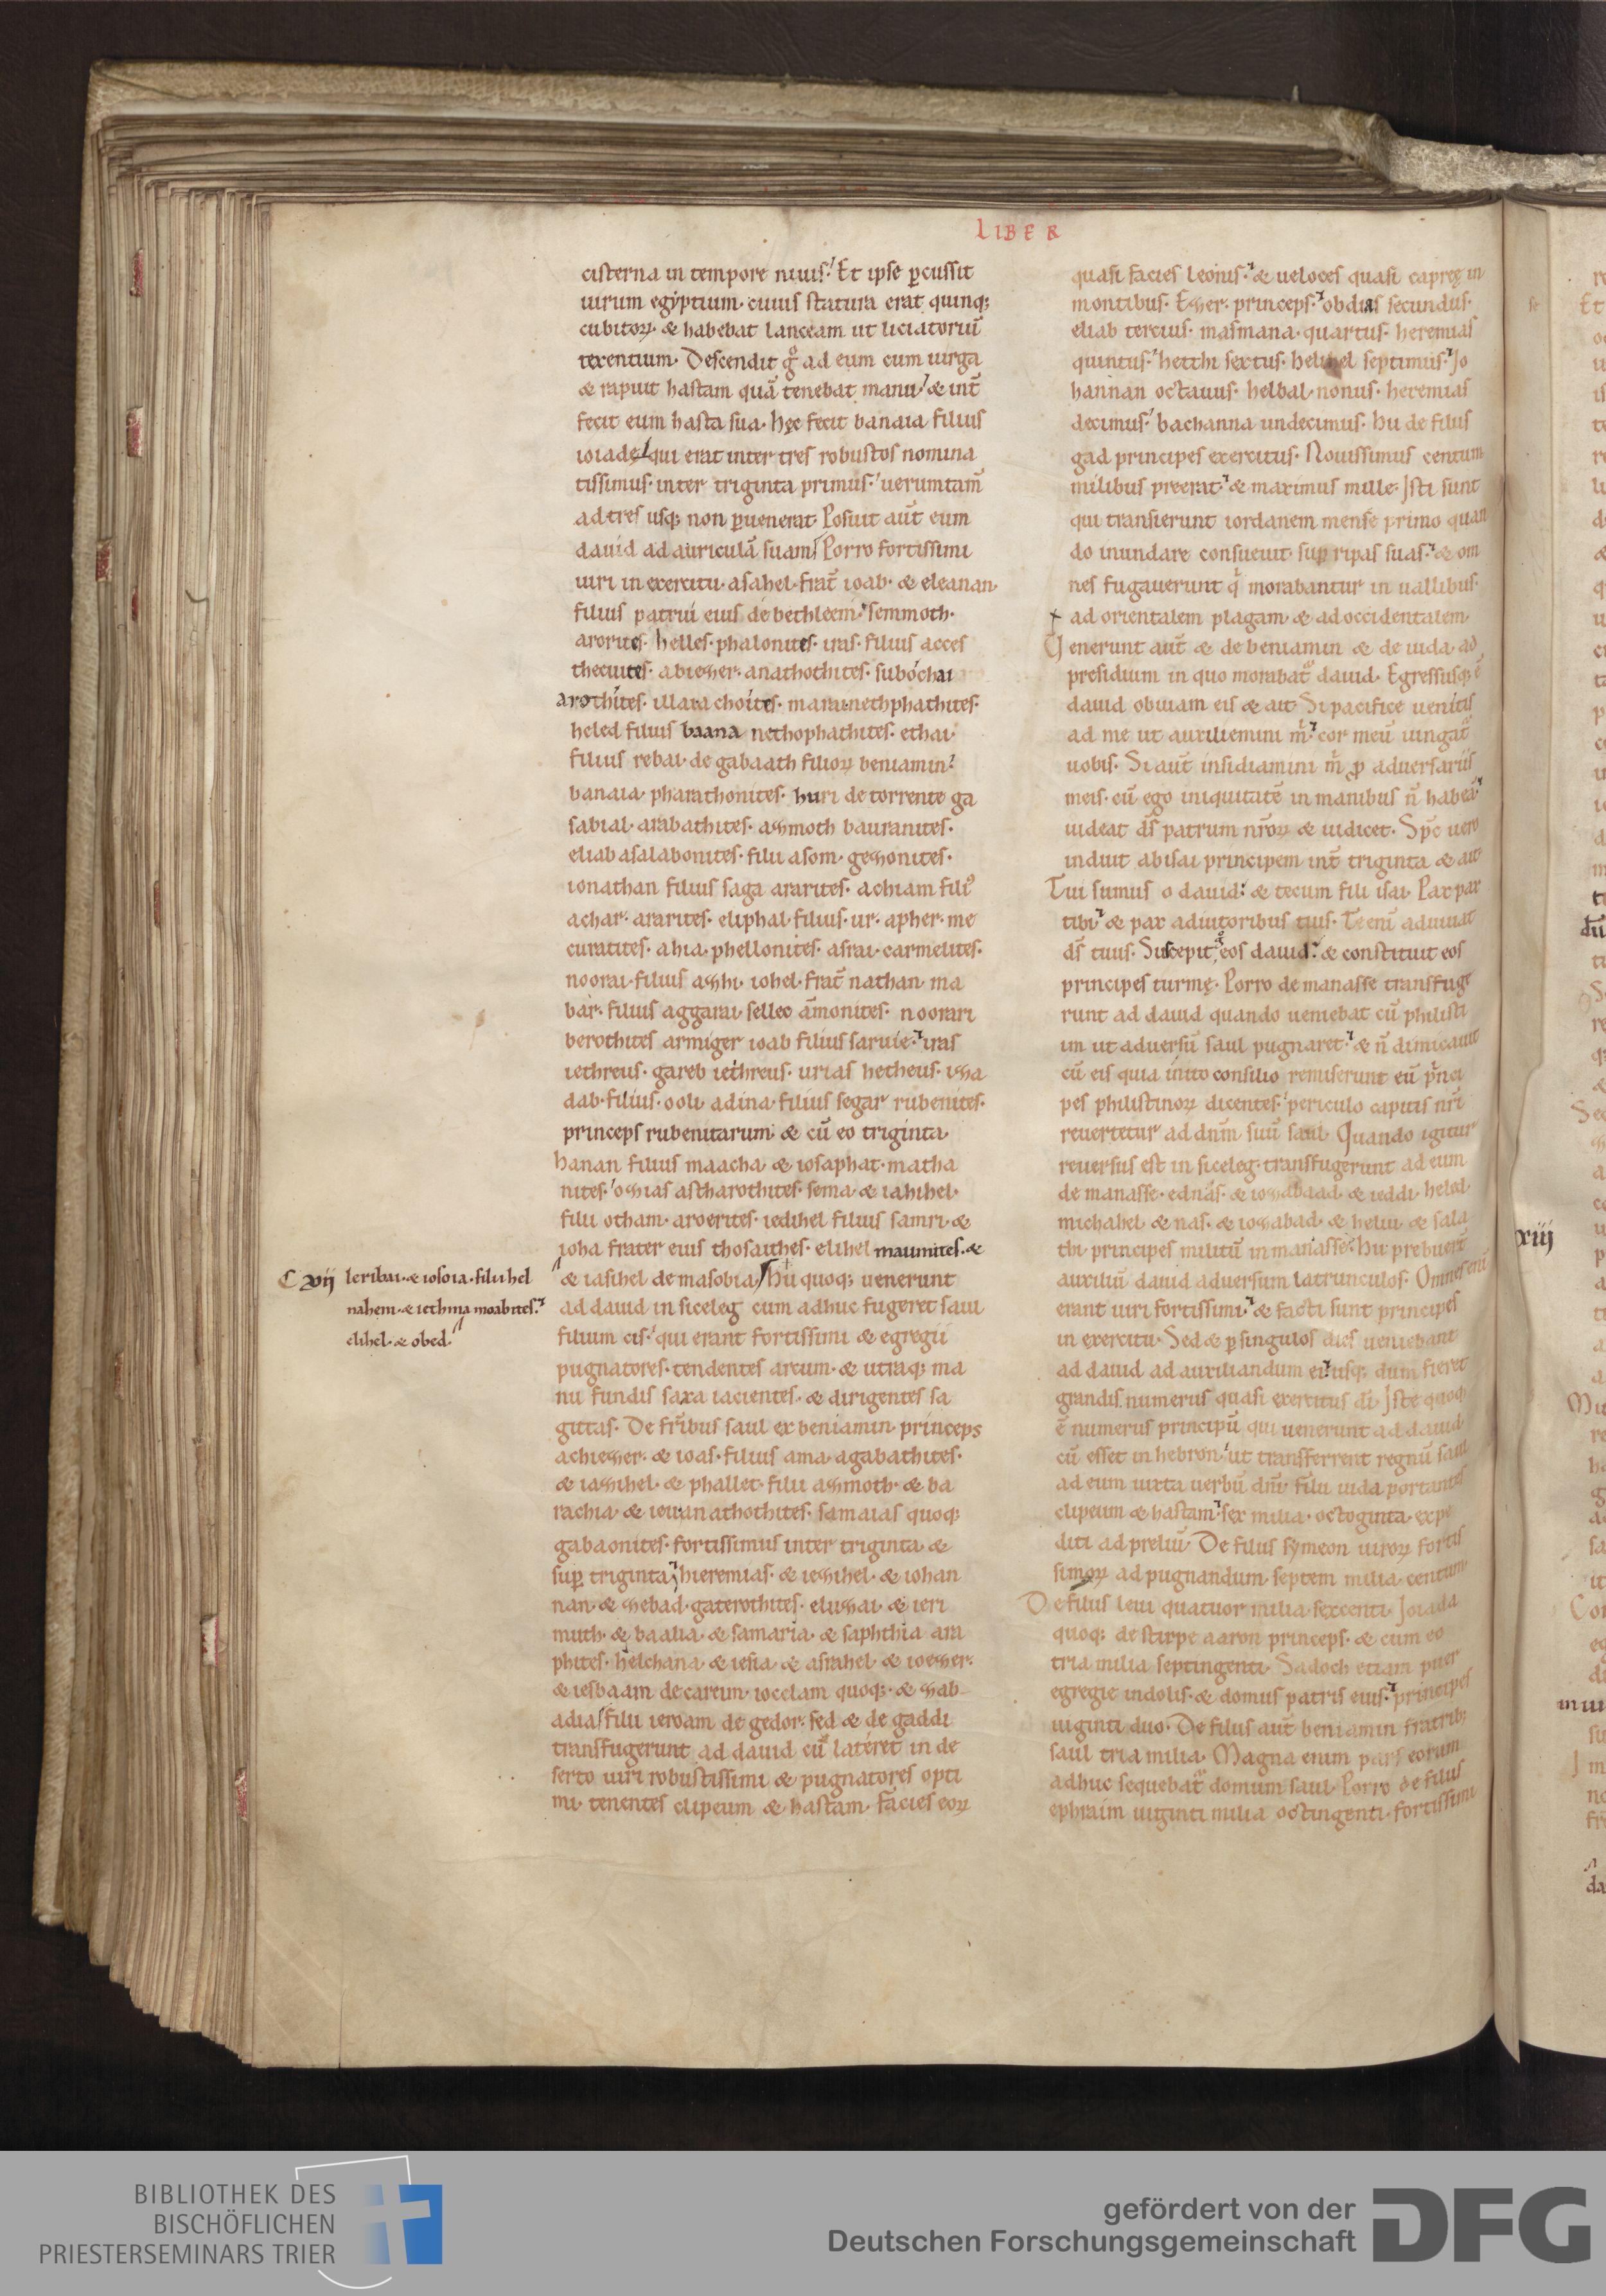 LIBER
cisterna in tempore niuis. Et ipse ꝑcussit
uirum egyptium· cuius statura erat quinq;
cubitoꝝ· & habebat lanceam ut liciatoriū
texentium· Descendit gͦ ad eum cum uirga
& rapuit hastam quā tenebat manu· & int̄
fecit eum hasta sua· hęc fecit banaia filius
ioiadę qui erat inter tres robustos nomina
tissimus· inter triginta primus· uerumtam̄
ad tres usq; non ꝑuenerat· Posuit aut̄ eum
dauid ad auriculā suam Porro fortissimi
uiri in exercitu· asahel· frat̄ ioab· & eleanan·
filius patrui eius de bethleem· semmoth·
arorites· helles· phalonites· iras· filius acces
thecuites· abiezer· anathothites· subochai
arothites· illara choites· marai·nethphathites·
heled filius baana nethophathites· ethai·
filius rebai· de gabaath filioꝝ beniamin·
banaia· pharathonites· huri de torrente ga
sabial· arabathites· azmoth bauranites·
eliab asalabonites· filii asom· gezonites·
ionathan filius saga ararites· achiam fili⁹
achar· ararites· eliphal· filius· ur· apher· me
curatites· ahia· phellonites· asrai· carmelites·
noorai· filius azbi· iohel· frat̄ nathan· ma
bar· filius aggarai· sellec āmonites· noorari
berothites armiger ioab filius saruie· iras
iethreus· gareb iethreus· urias hetheus· iza
dab· filius· ooli· adina· filius segar rubenites·
princeps rubenitarum· & cū eo triginta·
hanan filius maacha· & iosaphat· matha
nites· ozias astharothites· sema· & iahihel·
filii otham· aroerites· iedihel filius samri· &
ioha frater eius thosaithes· elihel maumites·&
C xvij leribai·& iosoia·filii hel
nahem·& iethma moabites·
elihel·& obed·
& iasihel de masobia Hii quoq; uenerunt
ad dauid in siceleg cum adhuc fugeret saul
filium cis· qui erant fortissimi & egregii
pugnatores· tendentes arcum· & utraq; ma
nu fundis saxa iacientes· & dirigentes sa
gittas· De fr̄ibus saul ex beniamin· princeps
achiezer· & ioas· filius ama· agabathites·
& iazihel· & phallet· filii azmoth· & ba
rachia· & ieu·anathothites· samaias quoq;
gabaonites· fortissimus inter triginta· &
suꝑ triginta· hieremias· & iezihel· & iohan
nan· & zebad· gaterothites· eluzai· & ieri
muth· & baalia· & samaria· & saphthia ara
phites· helchana· & iesia· & asrahel· & ioezer·
& iesbaam de careun· iocelam quoq;· & zab
adia filii ieroam de gedor· sed & de gaddi
transfugerunt ad dauid cū lateret in de
serto uiri robustissimi & pugnatores opti
mi· tenentes clipeum & hastam· facies eoꝝ
quasi facies leonis· & ueloces quasi caprę in
montibus· Ezer· princeps· obdias secundus·
eliab tercius· masmana· quartus· heremias
quintus· hetthi sextus· helihel septimus· Jo
hannan octauus· helbal· nonus· heremias
decimus· bachanna undecimus· hii de filiis
gad principes exercitus· Nouissimus centum
milibus preerat· & maximus mille· Jsti sunt
qui transierunt iordanem mense primo quan
do inundare consueuit· suꝑ ripas suas· & om
nes fugauerunt q̇ morabantur in uallibus·
ad orientalem plagam· & ad occidentalem·
Uenerunt aut̄ & de beniamin & de iuda· ad
presidium in quo morabat᷑ dauid· Egressusq; ē
dauid obuiam eis & ait· Si pacifice uenitis
ad me ut auxiliemini m̄· cor meū iungat᷑
uobis· Si aut̄ insidiamini m̄ ꝓ aduersariis
meis· cū ego iniquitatē in manibus n̄ habeā·
uideat d̄s patrum nr̄oꝝ & iudicet· Sp̄c uero
induit abisai principem int̄ triginta & ait
Tui sumus o dauid· & tecum fili isai· Pax pax
tibi· & pax adiutoribus tuis· Te eni adiuuat
d̄s tuus· Suscepit eos dauid· & constituit eos
principes turmę· Porro de manasse transfuge
runt ad dauid quando ueniebat cū philisti
im ut aduersū saul pugnaret· & n̄ dimicauit
cū eis quia inito consilio remiserunt eū p̄nci
pes philistinoꝝ dicentes· periculo capitis nr̄i
reuertetur ad dn̄m suū saul· Quando igitur
reuersus est in siceleg· transfugerunt ad eum
de manasse· ednas· & iozabaad· & ieddi· heled·
michahel· & nas· & iozabad· & heliu· & sala
thi· principes militū in manasse· hii prebuerū
auxiliū dauid aduersum latrunculos· Omnes eni
erant uiri fortissimi· & facti sunt principes
in exercitu· Sed & ꝑ singulos dies ueniebant
ad dauid ad auxiliandum ei· usq; dum fieret
grandis numerus quasi exercitus di· Jste quoq;
ē numerus principū qui uenerunt ad dauid
cū esset in hebron· ut transferrent regnū saul
ad eum iuxta uerbū dn̄i· filii iuda portantes
clipeum & hastam· sex milia· octoginta· expe
diti ad preliū· De filiis symeon uiroꝝ fortis
simoꝝ ad pugnandum· septem milia· centum
De filiis leui quatuor milia· sexcenti· Joiada
quoq; de stirpe aaron princeps· & cum eo
tria milia septingenti· Sadoch etiam puer
egregie indolis· & domus patris eius· principes
uiginti duo· De filiis aut̄ beniamin fratrib;
saul tria milia· Magna enim pars eorum
adhuc sequebat᷑ domum saul· Porro de filiis
ephraim uiginti milia octingenti· fortissimi
xiij
BIBLIOTHEK DES
BISCHÖFLICHEN
PRIESTERSEMINARS TRIER
gefördert von der
Deutschen Forschungsgemeinschaft
DFG